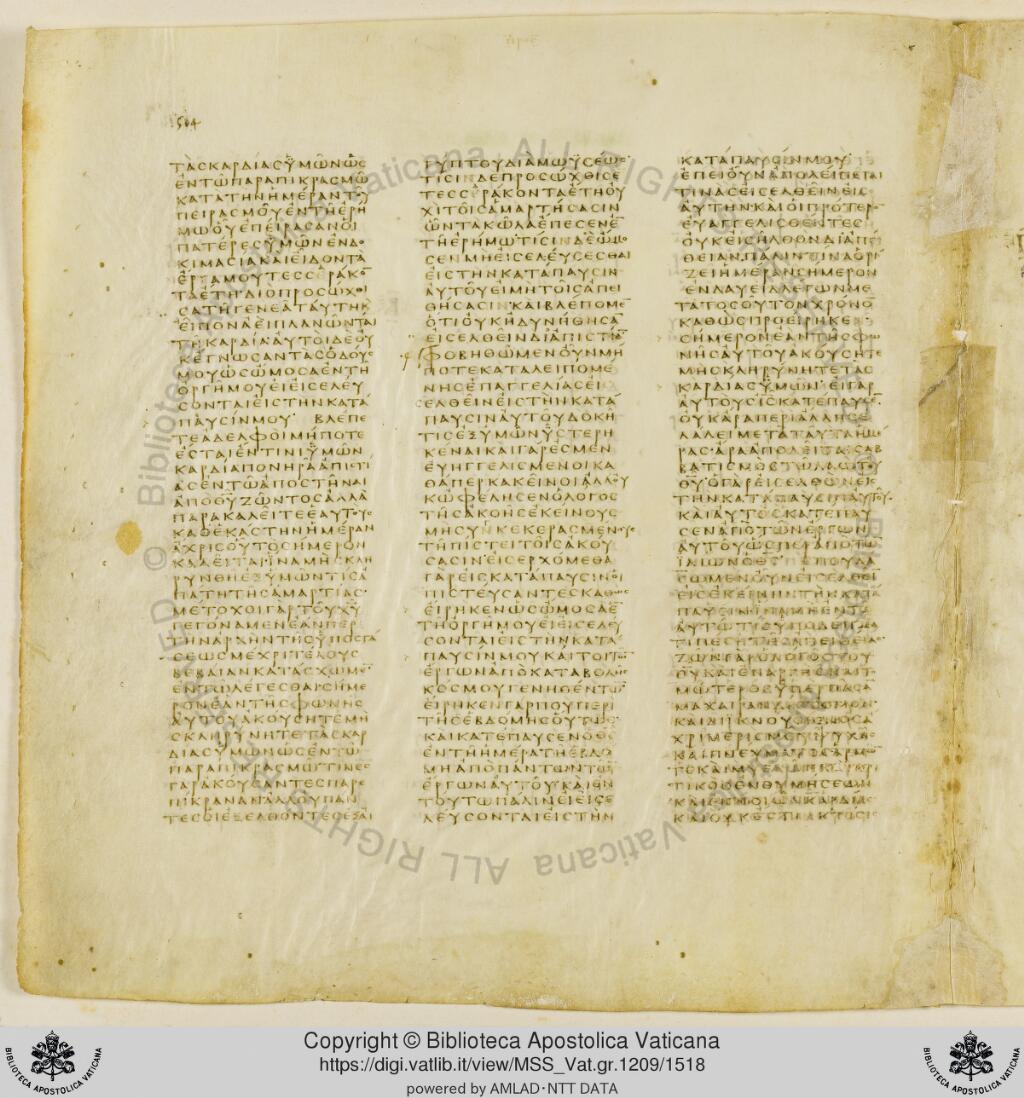 504
ΤΑϹΚΑΡΔΙΑϹΥΜΩΝΩϹ
ΕΝΤΩΠΑΡΑΠΙΚΡΑϹΜΩ
ΚΑΤΑΤΗΝΗΜΕΡΑΝΤΟΥ
ΠΕΙΡΑϹΜΟΥΕΝΤΗΕΡΗ
ΜΩΟΥΕΠΕΙΡΑϹΑΝΟΙ
ΠΑΤΕΡΕϹΥΜΩΝΕΝΔΟ
ΚΙΜΑϹΙΑΚΑΙΕΙΔΟΝΤΑ
ΕΡΓΑΜΟΥΤΕϹϹΕΡΑΚΟ̅
ΤΑΕΤΗΔΙΟΠΡΟϹΩΧΘΙ
ϹΑΤΗΓΕΝΕΑΤΑΥΤΗΚ
ΕΙΠΟΝΑΕΙΠΛΑΝΩΝΤΑΙ
ΤΗΚΑΡΔΙΑΑΥΤΟΙΔΕΟΥ
ΚΕΓΝΩϹΑΝΤΑϹΟΔΟΥϹ
ΜΟΥΩϹΩΜΟϹΑΕΝΤΗ
ΟΡΓΗΜΟΥΕΙΕΙϹΕΛΕΥ
ϹΟΝΤΑΙΕΙϹΤΗΝΚΑΤΑ
ΠΑΥϹΙΝΜΟΥ ΒΛΕΠΕ
ΤΕΑΔΕΛΦΟΙΜΗΠΟΤΕ
ΕϹΤΑΙΕΝΤΙΝΙΥΜΩΝ
ΚΑΡΔΙΑΠΟΝΗΡΑΑΠΙϹΤΙ
ΑϹΕΝΤΩΑΠΟϹΤΗΝΑΙ
ΑΠΟΘΥΖΩΝΤΟϹΑΛΛΑ
ΠΑΡΑΚΑΛΕΙΤΕΕΑΥΤΟΥϹ
ΚΑΘΕΚΑϹΤΗΝΗΜΕΡΑΝ
ΑΧΡΙϹΟΥΤΟϹΗΜΕΡΟΝ
ΚΑΛΕΙΤΑΙΙΝΑΜΗϹΚΛΗ
ΡΥΝΘΗΕΞΥΜΩΝΤΙϹΑ
ΠΑΤΗΤΗϹΑΜΑΡΤΙΑϹ
ΜΕΤΟΧΟΙΓΑΡΤΟΥΧΥ
ΓΕΓΟΝΑΜΕΝΕΑΝΠΕΡ
ΤΗΝΑΡΧΗΝΤΗϹΥΠΟϹΤΑ
ϹΕΩϹΜΕΧΡΙΤΕΛΟΥϹ
ΒΕΒΑΙΑΝΚΑΤΑϹΧΩΜΕ̅
ΕΝΤΩΛΕΓΕϹΘΑΙϹΗΜΕ
ΡΟΝΕΑΝΤΗϹΦΩΝΗϹ
ΑΥΤΟΥΑΚΟΥϹΗΤΕΜΗ
ϹΚΛΗΡΥΝΗΤΕΤΑϹΚΑΡ
ΔΙΑϹΥΜΩΝΩϹΕΝΤΩ
ΠΑΡΑΠΙΚΡΑϹΜΩΤΙΝΕϹ
ΓΑΡΑΚΟΥϹΑΝΤΕϹΠΑΡΕ
ΠΙΚΡΑΝΑΝΑΛΛΟΥΠΑΝ
ΤΕϹΟΙΕΞΕΛΘΟΝΤΕϹΕΞΑΙ
ΓΥΠΤΟΥΔΙΑΜΩΥϹΕΩϹ
ΤΙϹΙΝΔΕΠΡΟϹΩΧΘΙϹΕ
ΤΕϹϹΕΡΑΚΟΝΤΑΕΤΗΟΥ
ΧΙΤΟΙϹΑΜΑΡΤΗϹΑϹΙΝ
ΩΝΤΑΚΩΛΑΕΠΕϹΕΝΕ̅
ΤΗΕΡΗΜΩΤΙϹΙΝΔΕΩΜΟ
ϹΕΝΜΗΕΙϹΕΛΕΥϹΕϹΘΑΙ
ΕΙϹΤΗΝΚΑΤΑΠΑΥϹΙΝ
ΑΥΤΟΥΕΙΜΗΤΟΙϹΑΠΕΙ
ΘΗϹΑϹΙΝΚΑΙΒΛΕΠΟΜΕ̅
ΟΤΙΟΥΚΗΔΥΝΗΘΗϹΑ̅
ΕΙϹΕΛΘΕΙΝΔΙΑΠΙϹΤΙΑ̅
ΦΟΒΗΘΩΜΕΝΟΥΝΜΗ
ΠΟΤΕΚΑΤΑΛΕΙΠΟΜΕ
ΝΗϹΕΠΑΓΓΕΛΙΑϹΕΙϹ
ΕΛΘΕΙΝΕΙϹΤΗΝΚΑΤΑ
ΠΑΥϹΙΝΑΥΤΟΥΔΟΚΗ
ΤΙϹΕΞΥΜΩΝΥϹΤΕΡΗ
ΚΕΝΑΙΚΑΙΓΑΡΕϹΜΕΝ
ΕΥΗΓΓΕΛΙϹΜΕΝΟΙΚΑ
ΘΑΠΕΡΚΑΚΕΙΝΟΙΑΛΛΟΥ
ΚΩΦΕΛΗϹΕΝΟΛΟΓΟϹ
ΤΗϹΑΚΟΗϹΕΚΕΙΝΟΥϹ
ΜΗϹΥΓΚΕΚΕΡΑϹΜΕΝΟΥϹ
ΤΗΠΙϹΤΕΙΤΟΙϹΑΚΟΥ
ϹΑϹΙΝΕΙϹΕΡΧΟΜΕΘΑ
ΓΑΡΕΙϹΚΑΤΑΠΑΥϹΙΝΟΙ
ΠΙϹΤΕΥϹΑΝΤΕϹΚΑΘΩϹ
ΕΙΡΗΚΕΝΩϹΩΜΟϹΑΕ̅
ΤΗΟΡΓΗΜΟΥΕΙΕΙϹΕΛΕΥ
ϹΟΝΤΑΙΕΙϹΤΗΝΚΑΤΑ
ΠΑΥϹΙΝΜΟΥΚΑΙΤΟΙΤΩ̅
ΕΡΓΩΝΑΠΟΚΑΤΑΒΟΛΗϹ
ΚΟϹΜΟΥΓΕΝΗΘΕΝΤΩ̅
ΕΙΡΗΚΕΝΓΑΡΠΟΥΠΕΡΙ
ΤΗϹΕΒΔΟΜΗϹΟΥΤΩϹ
ΚΑΙΚΑΤΕΠΑΥϹΕΝΟΘϹ
ΕΝΤΗΗΜΕΡΑΤΗΕΒΔΟ
ΜΗΑΠΟΠΑΝΤΩΝΤΩ̅
ΕΡΓΩΝΑΥΤΟΥΚΑΙΕΝ
ΤΟΥΤΩΠΑΛΙΝΕΙΕΙϹΕ
ΛΕΥϹΟΝΤΑΙΕΙϹΤΗΝ
ΚΑΤΑΠΑΥϹΙΝΜΟΥ
ΕΠΕΙΟΥΝΑΠΟΛΕΙΠΕΤΑΙ
ΤΙΝΑϹΕΙϹΕΛΘΕΙΝΕΙϹ
ΑΥΤΗΝΚΑΙΟΙΠΡΟΤΕΡΟ̅
ΕΥΑΓΓΕΛΙϹΘΕΝΤΕϹ
ΟΥΚΕΙϹΗΛΘΟΝΔΙΑΠΕΙ
ΘΕΙΑΝΠΑΛΙΝΤΙΝΑΟΡΙ
ΖΕΙΗΜΕΡΑΝϹΗΜΕΡΟΝ
ΕΝΔΑΥΕΙΔΛΕΓΩΝΜΕ
ΤΑΤΟϹΟΥΤΟΝΧΡΟΝΟ̅
ΚΑΘΩϹΠΡΟΕΙΡΗΚΕ̅
ϹΗΜΕΡΟΝΕΑΝΤΗϹΦΩ
ΝΗϹΑΥΤΟΥΑΚΟΥϹΗΤΕ
ΜΗϹΚΛΗΡΥΝΗΤΕΤΑϹ
ΚΑΡΔΙΑϹΥΜΩΝΕΙΓΑΡ
ΑΥΤΟΥϹΙϹΚΑΤΕΠΑΥϹΕ̅
ΟΥΚΑΡΑΠΕΡΙΑΛΛΗϹΕ
ΛΑΛΕΙΜΕΤΑΤΑΥΤΑΗΜΕ
ΡΑϹΑΡΑΑΠΟΛΕΙΠΕΤΑΙϹΑΒ
ΒΑΤΙϹΜΟϹΤΩΛΑΩΤΟΥ
ΘΥΟΓΑΡΕΙϹΕΛΘΩΝΕΙϹ
ΤΗΝΚΑΤΑΠΑΥϹΙΝΑΥΤΟΥ
ΚΑΙΑΥΤΟϹΚΑΤΕΠΑΥ
ϹΕΝΑΠΟΤΩΝΕΡΓΩΝ
ΑΥΤΟΥΩϹΠΕΡΑΠΟΤΩ̅
ΙΔΙΩΝΟΘϹ ϹΠΟΥΔΑ
ϹΩΜΕΝΟΥΝΕΙϹΕΛΘΕΙ̅
ΕΙϹΕΚΕΙΝΗΝΤΗΝΚΑΤΑ
ΠΑΥϹΙΝΙΝΑΜΗΕΝΤΩ
ΑΥΤΩΤΙϹΥΠΟΔΕΙΓΜΑ
ΤΙΠΕϹΗΤΗϹΑΠΕΙΘΕΙΑϹ
ΖΩΝΓΑΡΟΛΟΓΟϹΤΟΥΘΥ